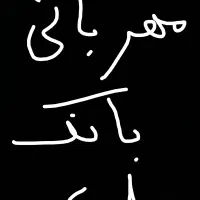 مهربانی
بانک